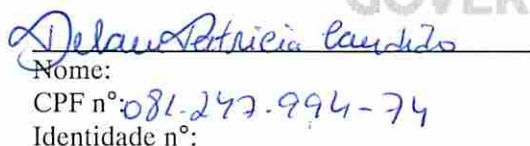 GOVER
Patricia Candido
Nome:
CPF n°: 081.247.994-74
Identidade n°: